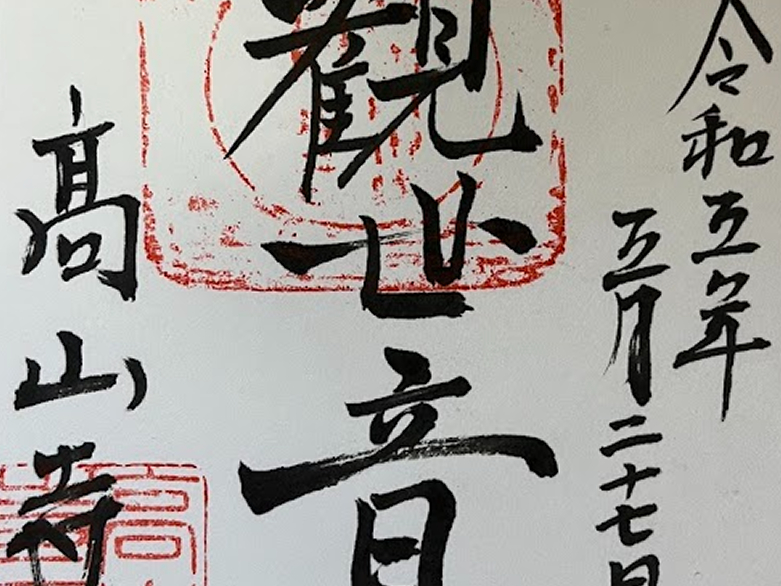 令和五年
五月二十七日
観世音
高山寺